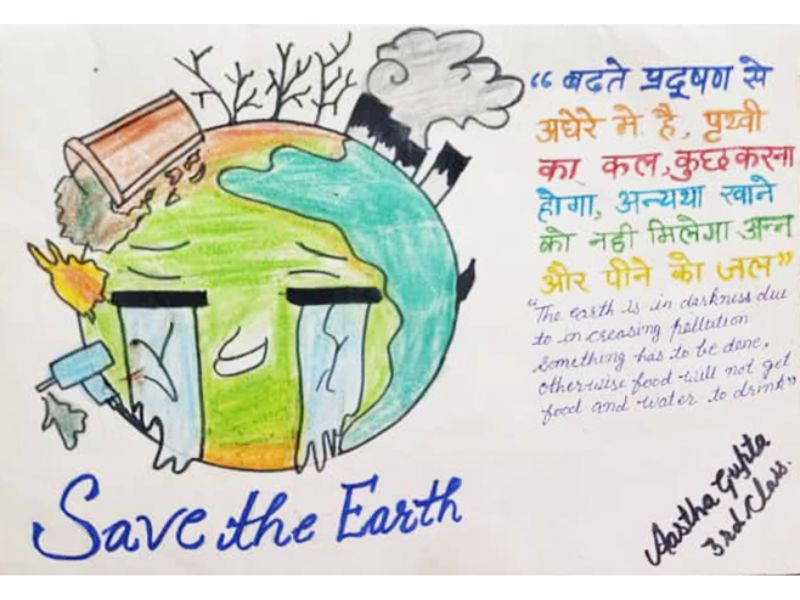 “ बढते प्रदूषण से
अधेरे मे है, पृथ्वी
का कल, कुछ करना
होगा, अन्यथा खाने
को नही मिलेगा अन्न
और पीने को जल”
“The earth is in darkness due
to in creasing pollution
something has to be done,
otherwise food will not get
food and water to drink”
Save the Earth
Aastha Gupta
3rd Class.